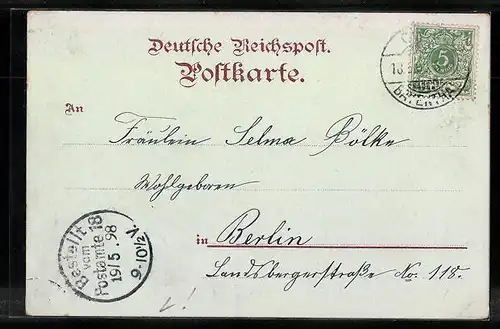 Deutsche Reichspost.
Postkarte.
5
18.5
BAYENTHAL
An
Fräulein Selma Bölke
Wohlgeboren
in Berlin
Landsbergerstraße No. 118.
Bestellt
vom
Postamte 18
19/5.98
9-10½V.